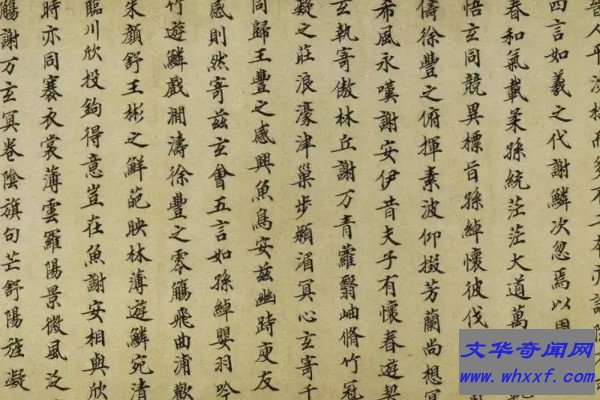 四言如羲之代謝鱗次忽焉以周
春和氣載柔孫統茫茫大道萬
悟玄同競異標旨孫綽懷彼伐
儔徐豐之俯揮素波仰掇芳蘭尚想冥
希風永嘆謝安伊昔夫子有懷春遊契
玄執寄傲林丘謝万青蘿翳岫脩竹冠
凝之莊浪濠津巢步潁湄冥心玄寄千
同歸王豐之感興魚鳥安茲幽峙庾友
感則然寄茲玄會五言如孫綽嬰羽吟
竹遊鱗戲瀾濤徐豐之零觴飛曲浦歡
朱顏舒王彬之鮮葩映林薄遊鱗宛清
臨川欣投鉤得意豈在魚謝安相與欣
時亦同褰衣裳薄雲羅陽景微風泛
觴謝万玄冥卷陰旗句芒舒陽旌凝
文华奇闻网
www.whxxf.com